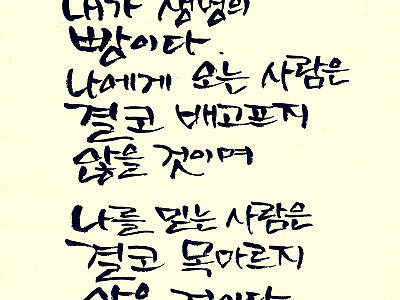 내가 생명의
빵이다.
나에게 오는 사람은
결코 배고프지
않을 것이며
나를 믿는 사람은
결코 목마르지
않을 것이다